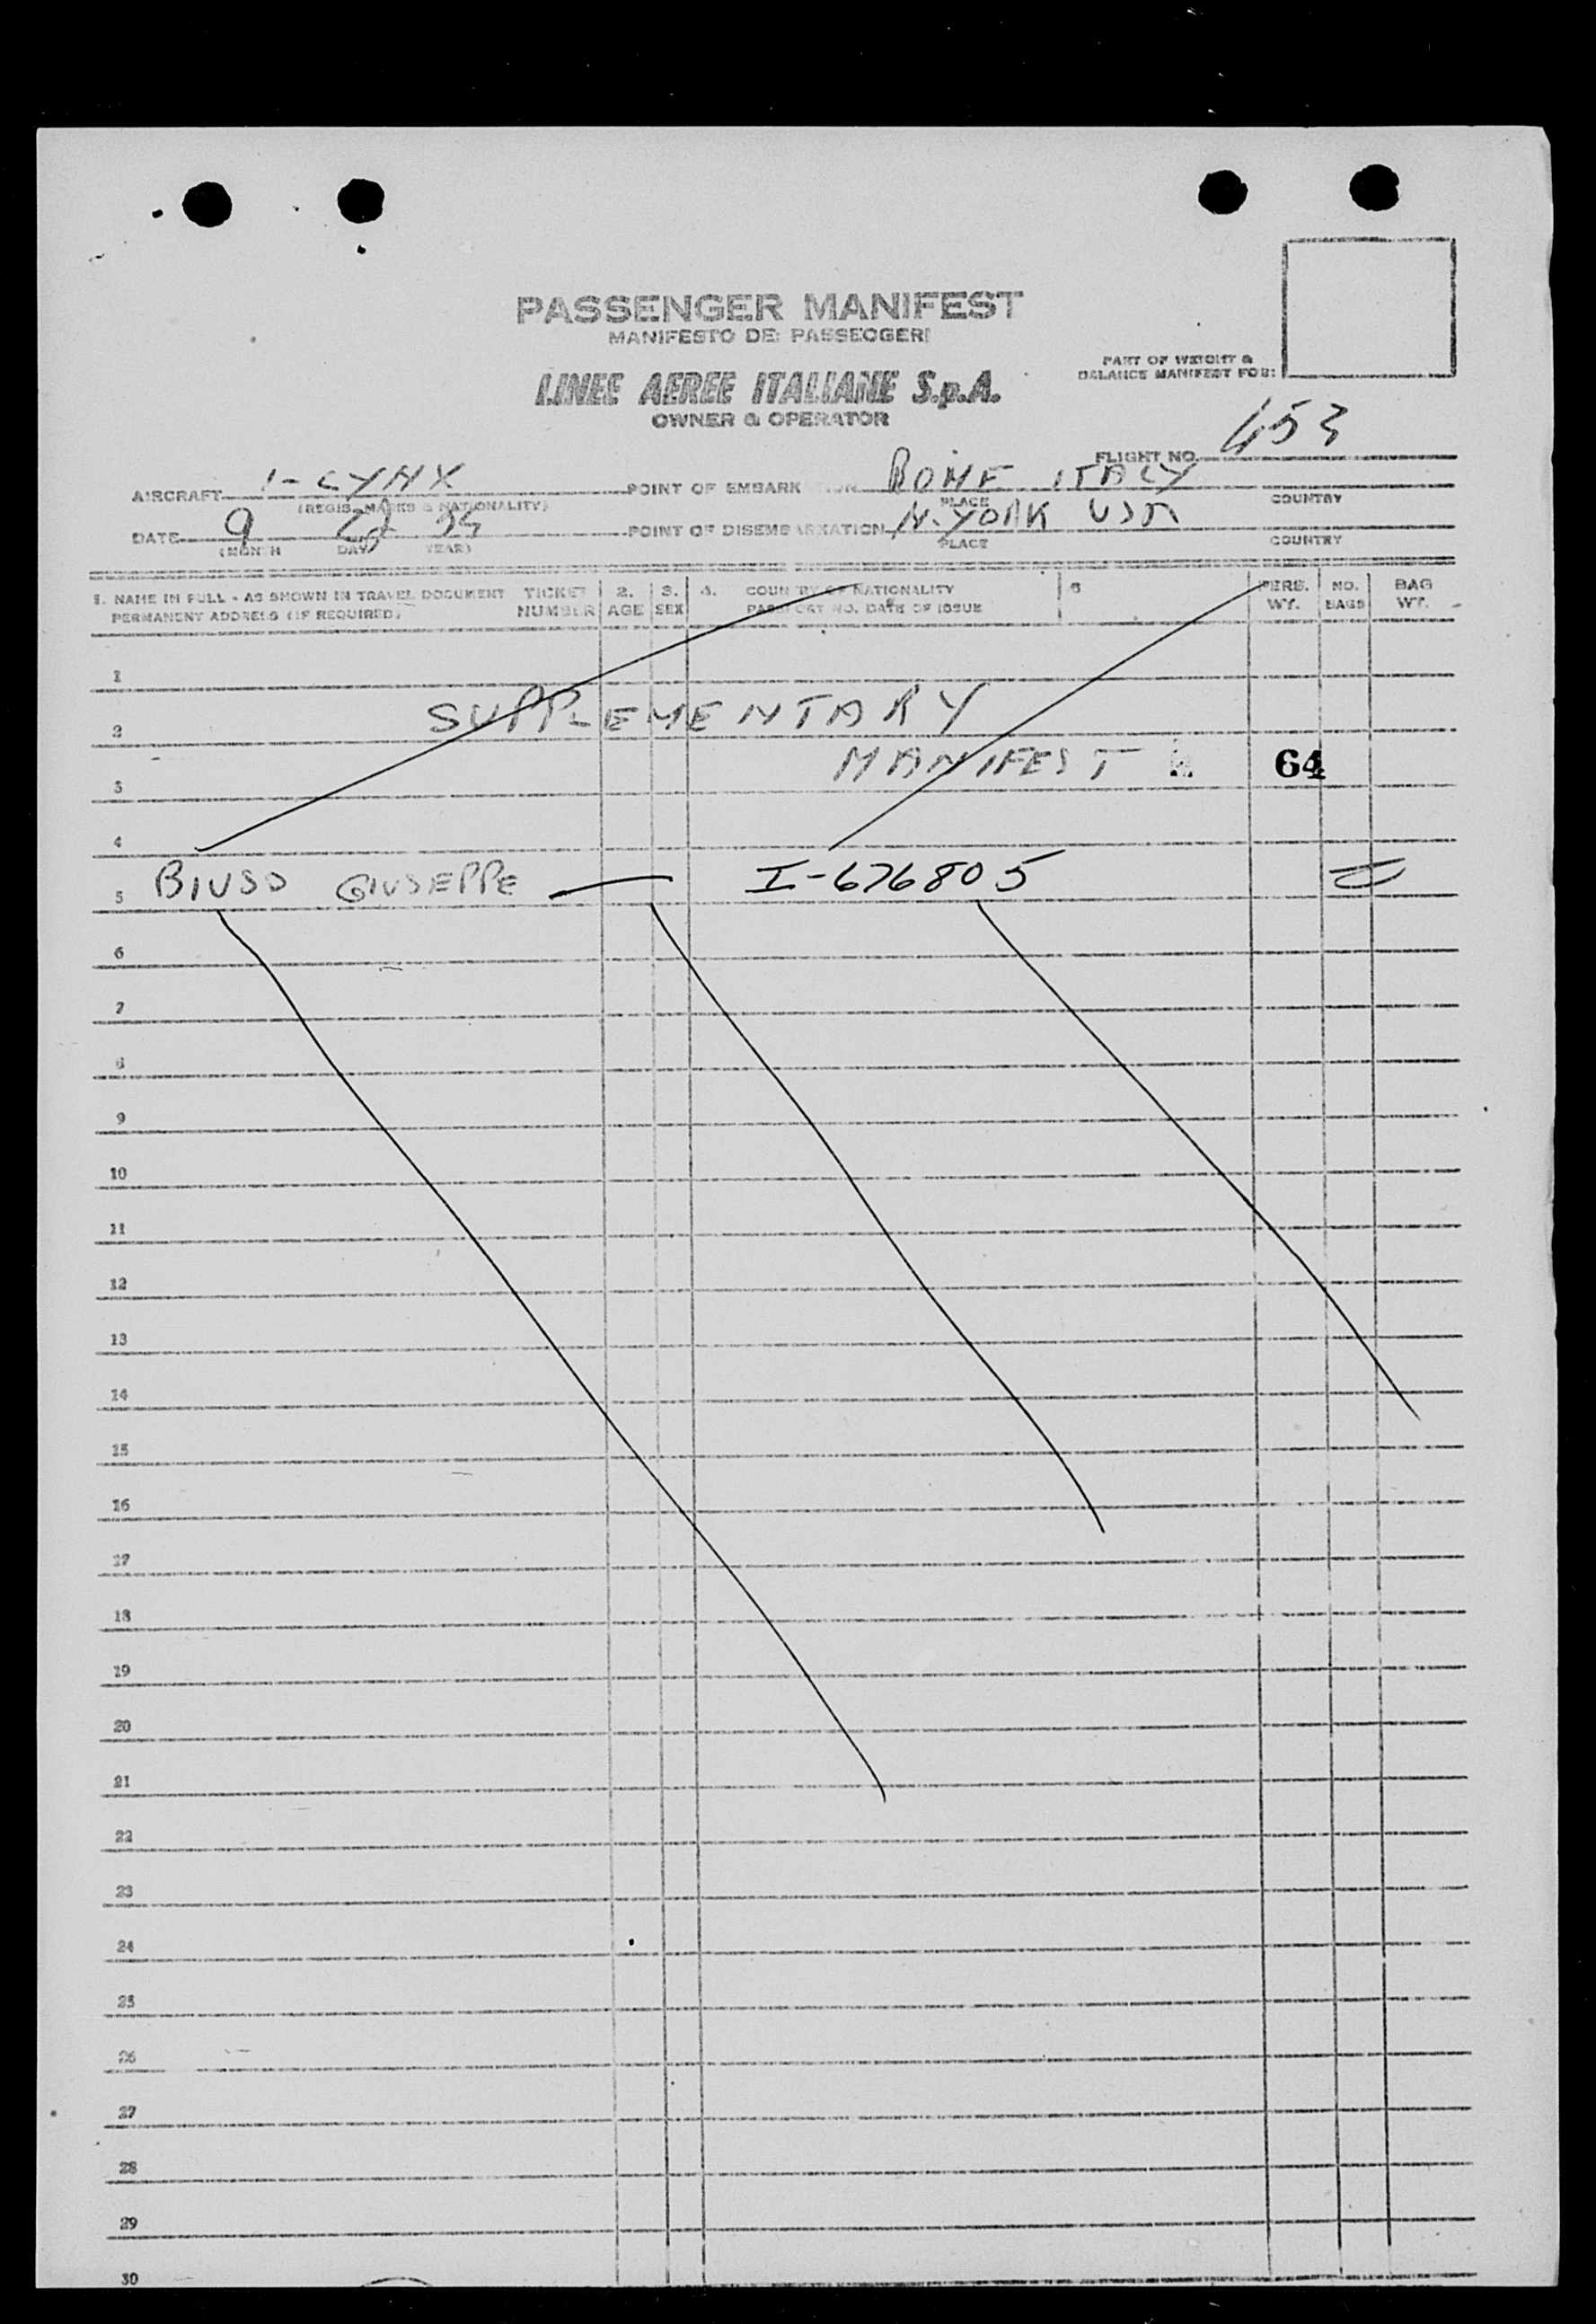 PASSENGER MANIFEST
MANIFESTO DEI PASSEGGERI
LINEE AEREE ITALIANE S.p.A.
OWNER & OPERATOR
PART OF WEIGHT &
BALANCE MANIFEST FOR:
FLIGHT NO. 453
AIRCRAFT I-LYNX POINT OF EMBARKATION ROME ITALY
(REGIS. MARKS & NATIONALITY) PLACE COUNTRY
DATE 9 54 POINT OF DISEMBARKATION N. YORK USA
(MONTH DAY YEAR) PLACE COUNTRY
1. NAME IN FULL - AS SHOWN IN TRAVEL DOCUMENT TICKET 2. 3. 4. COUNTRY OF NATIONALITY 5 PERS. NO. BAG
PERMANENT ADDRESS (IF REQUIRED) NUMBER AGE SEX PASSPORT NO. DATE OF ISSUE WT. BAGS WT.
1
2 SUPPLEMENTARY
3 MANIFEST 64
4
5 BIUSO GIUSEPPE — I-676805
6
7
8
9
10
11
12
13
14
15
16
17
18
19
20
21
22
23
24
25
26
27
28
29
30